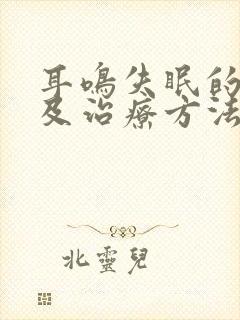 耳鳴失眠的
及治療方法
北靈兒